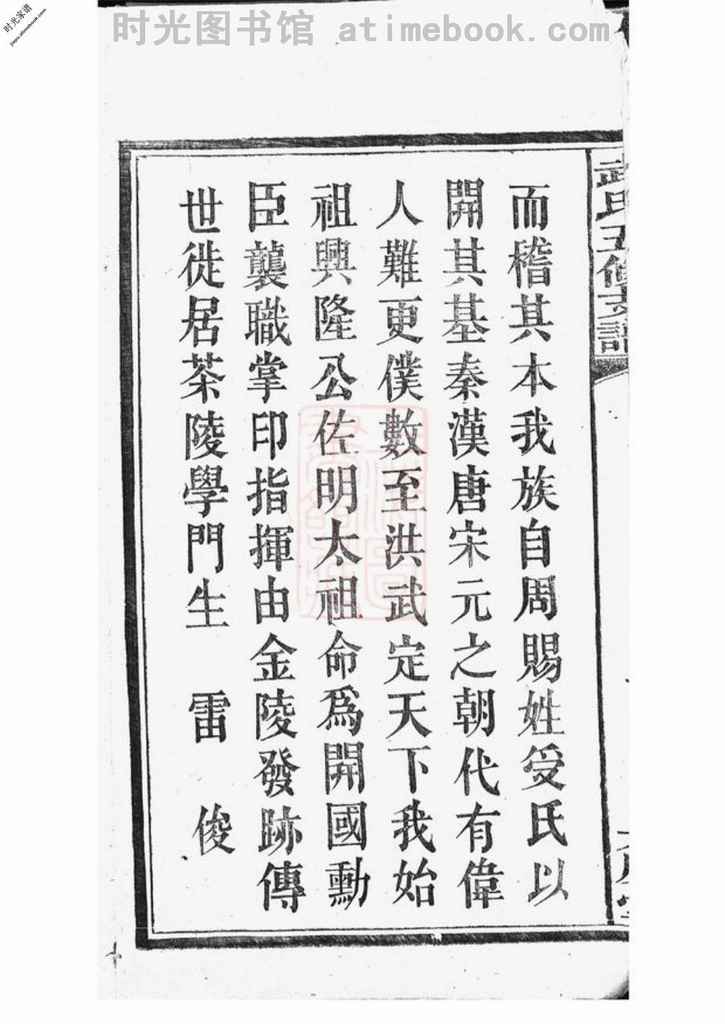 时光图书馆 atimebook.com
时光家谱
武氏五修支譜
而稽其本我族自周賜姓受氏以
開其基秦漢唐宋元之朝代有偉
人難更僕數至洪武定天下我始
祖興隆公佐明太祖命爲開國勳
臣襲職掌印指揮由金陵發跡傳
世徙居茶陵學門生 雷 俊